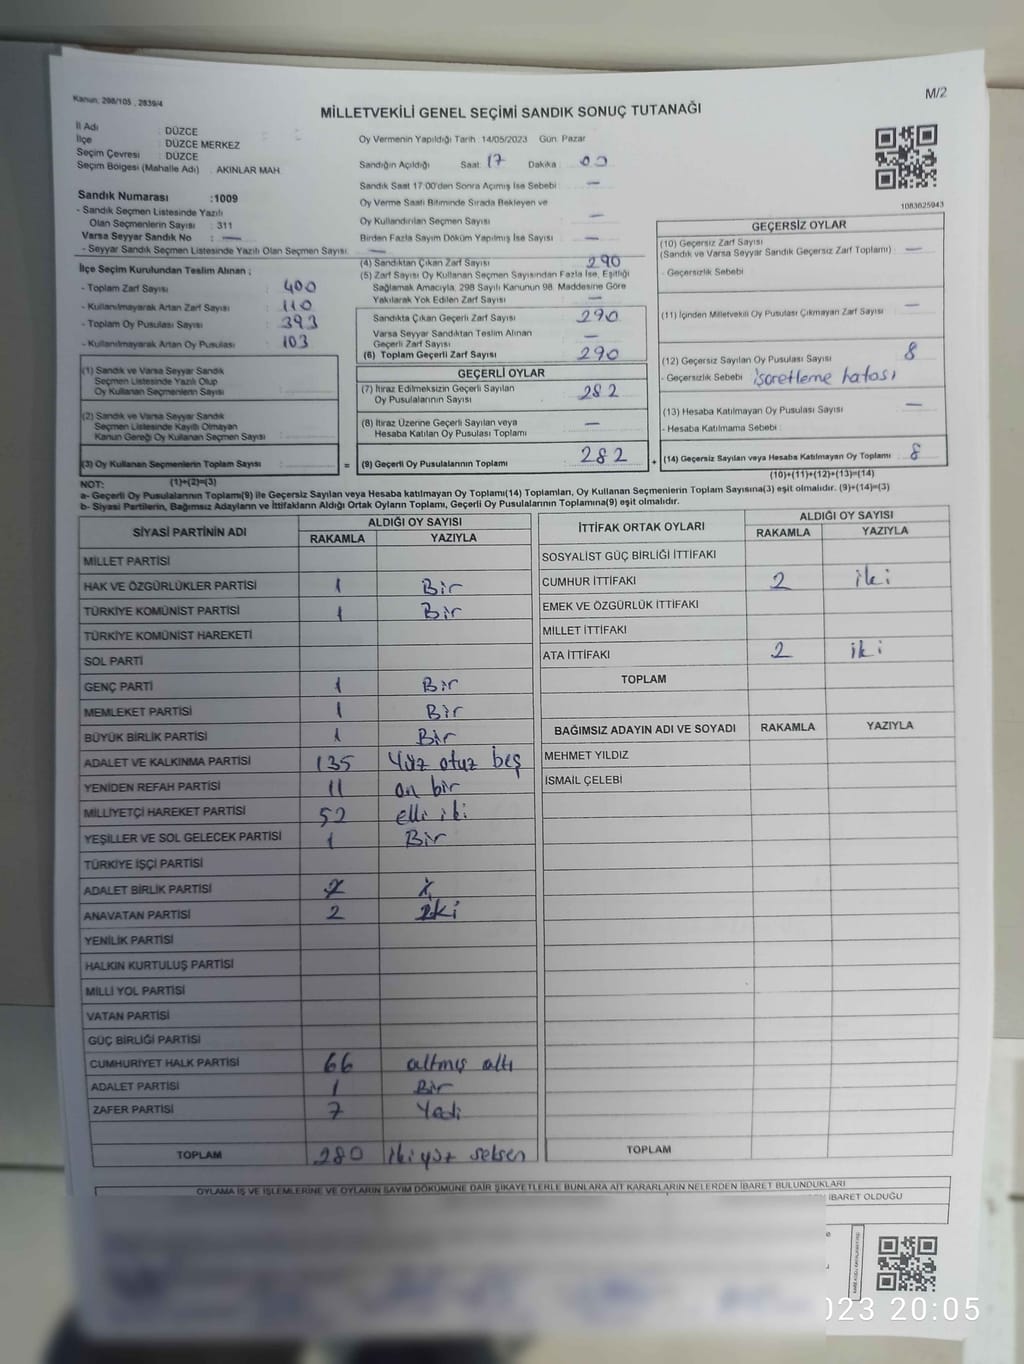 Kanun: 298/105 , 2839/4
M/2
MİLLETVEKİLİ GENEL SEÇİMİ SANDIK SONUÇ TUTANAĞI
İl Adı : DÜZCE
İlçe : DÜZCE MERKEZ
Seçim Çevresi : DÜZCE
Seçim Bölgesi (Mahalle Adı) : AKINLAR MAH
Sandık Numarası :1009
- Sandık Seçmen Listesinde Yazılı
Olan Seçmenlerin Sayısı : 311
Varsa Seyyar Sandık No : —
- Seyyar Sandık Seçmen Listesinde Yazılı Olan Seçmen Sayısı: —
Oy Vermenin Yapıldığı Tarih 14/05/2023 Gün: Pazar
Sandığın Açıldığı Saat: 17 Dakika : 00
Sandık Saat 17:00'den Sonra Açımış İse Sebebi : —
Oy Verme Saati Bitiminde Sırada Bekleyen ve
Oy Kullandırılan Seçmen Sayısı : —
Birden Fazla Sayım Döküm Yapılmış İse Sayısı : —
1083625943
İlçe Seçim Kurulundan Teslim Alınan ;
- Toplam Zarf Sayısı : 400
- Kullanılmayarak Artan Zarf Sayısı : 110
- Toplam Oy Pusulası Sayısı : 393
- Kullanılmayarak Artan Oy Pusulası : 103
(1) Sandık ve Varsa Seyyar Sandık
Seçmen Listesinde Yazılı Olup
Oy Kullanan Seçmenlerin Sayısı :
(2) Sandık ve Varsa Seyyar Sandık
Seçmen Listesinde Kayıtlı Olmayan
Kanun Gereği Oy Kullanan Seçmen Sayısı :
(3) Oy Kullanan Seçmenlerin Toplam Sayısı :
(4) Sandıktan Çıkan Zarf Sayısı : 290
(5) Zarf Sayısı Oy Kullanan Seçmen Sayısından Fazla İse, Eşitliği
Sağlamak Amacıyla, 298 Sayılı Kanunun 98. Maddesine Göre
Yakılarak Yok Edilen Zarf Sayısı : —
Sandıkta Çıkan Geçerli Zarf Sayısı : 290
Varsa Seyyar Sandıktan Teslim Alınan
Geçerli Zarf Sayısı : —
(6) Toplam Geçerli Zarf Sayısı : 290
GEÇERLİ OYLAR
(7) İtiraz Edilmeksizin Geçerli Sayılan
Oy Pusulalarının Sayısı : 282
(8) İtiraz Üzerine Geçerli Sayılan veya
Hesaba Katılan Oy Pusulası Toplamı : —
= (9) Geçerli Oy Pusulalarının Toplamı : 282
GEÇERSİZ OYLAR
(10) Geçersiz Zarf Sayısı
(Sandık ve Varsa Seyyar Sandık Geçersiz Zarf Toplamı) : —
- Geçersizlik Sebebi :
(11) İçinden Milletvekili Oy Pusulası Çıkmayan Zarf Sayısı : —
(12) Geçersiz Sayılan Oy Pusulası Sayısı : 8
- Geçersizlik Sebebi : işaretleme hatası
(13) Hesaba Katılmayan Oy Pusulası Sayısı : —
- Hesaba Katılmama Sebebi :
+ (14) Geçersiz Sayılan veya Hesaba Katılmayan Oy Toplamı : 8
NOT: (1)+(2)=(3)
(10)+(11)+(12)+(13)=(14)
a- Geçerli Oy Pusulalarının Toplamı(9) ile Geçersiz Sayılan veya Hesaba katılmayan Oy Toplamı(14) Toplamları, Oy Kullanan Seçmenlerin Toplam Sayısına(3) eşit olmalıdır. (9)+(14)=(3)
b- Siyasi Partilerin, Bağımsız Adayların ve İttifakların Aldığı Ortak Oyların Toplamı, Geçerli Oy Pusulalarının Toplamına(9) eşit olmalıdır.
SİYASİ PARTİNİN ADI ALDIĞI OY SAYISI
RAKAMLA YAZIYLA
MİLLET PARTİSİ
HAK VE ÖZGÜRLÜKLER PARTİSİ 1 Bir
TÜRKİYE KOMÜNİST PARTİSİ 1 Bir
TÜRKİYE KOMÜNİST HAREKETİ
SOL PARTİ
GENÇ PARTİ 1 Bir
MEMLEKET PARTİSİ 1 Bir
BÜYÜK BİRLİK PARTİSİ 1 Bir
ADALET VE KALKINMA PARTİSİ 135 Yüz otuz beş
YENİDEN REFAH PARTİSİ 11 on bir
MİLLİYETÇİ HAREKET PARTİSİ 52 elli iki
YEŞİLLER VE SOL GELECEK PARTİSİ 1 Bir
TÜRKİYE İŞÇİ PARTİSİ
ADALET BİRLİK PARTİSİ
ANAVATAN PARTİSİ 2 iki
YENİLİK PARTİSİ
HALKIN KURTULUŞ PARTİSİ
MİLLİ YOL PARTİSİ
VATAN PARTİSİ
GÜÇ BİRLİĞİ PARTİSİ
CUMHURİYET HALK PARTİSİ 66 altmış altı
ADALET PARTİSİ 1 Bir
ZAFER PARTİSİ 7 Yedi
TOPLAM 280 iki yüz seksen
İTTİFAK ORTAK OYLARI ALDIĞI OY SAYISI
RAKAMLA YAZIYLA
SOSYALİST GÜÇ BİRLİĞİ İTTİFAKI
CUMHUR İTTİFAKI 2 iki
EMEK VE ÖZGÜRLÜK İTTİFAKI
MİLLET İTTİFAKI
ATA İTTİFAKI 2 iki
TOPLAM
BAĞIMSIZ ADAYIN ADI VE SOYADI RAKAMLA YAZIYLA
MEHMET YILDIZ
İSMAİL ÇELEBİ
TOPLAM
OYLAMA İŞ VE İŞLEMLERİNE VE OYLARIN SAYIM DÖKÜMÜNE DAİR ŞİKAYETLERLE BUNLARA AİT KARARLARIN NELERDEN İBARET BULUNDUKLARI
İBARET OLDUĞU
023 20:05